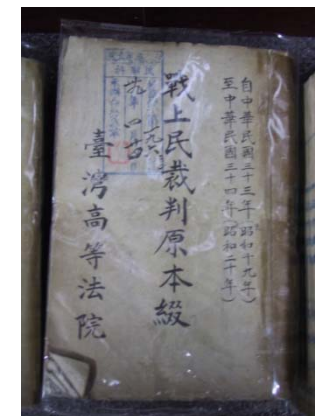 自中華民國三十三年(昭和十九年)
至中華民國三十四年(昭和二十年)
戰上民裁判原本綴
臺灣高等法院